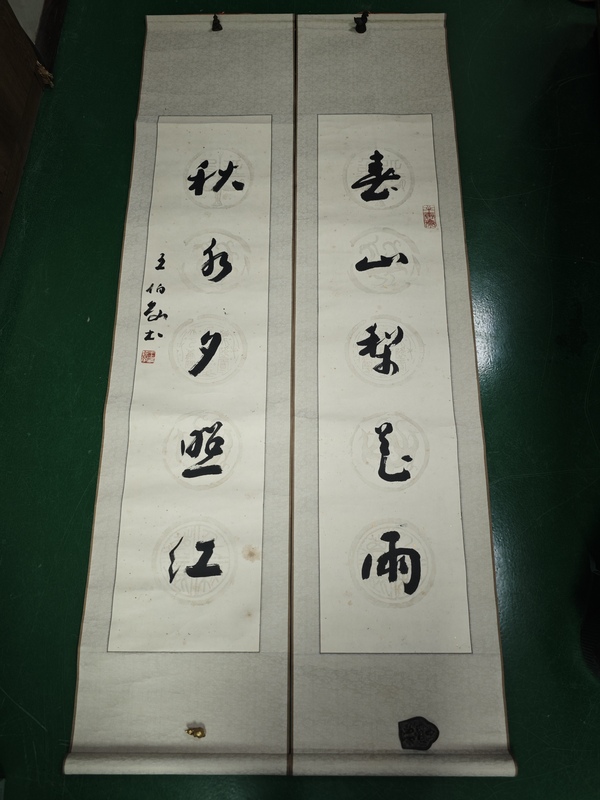 春山梨花雨
秋水夕照红
王伯岩书